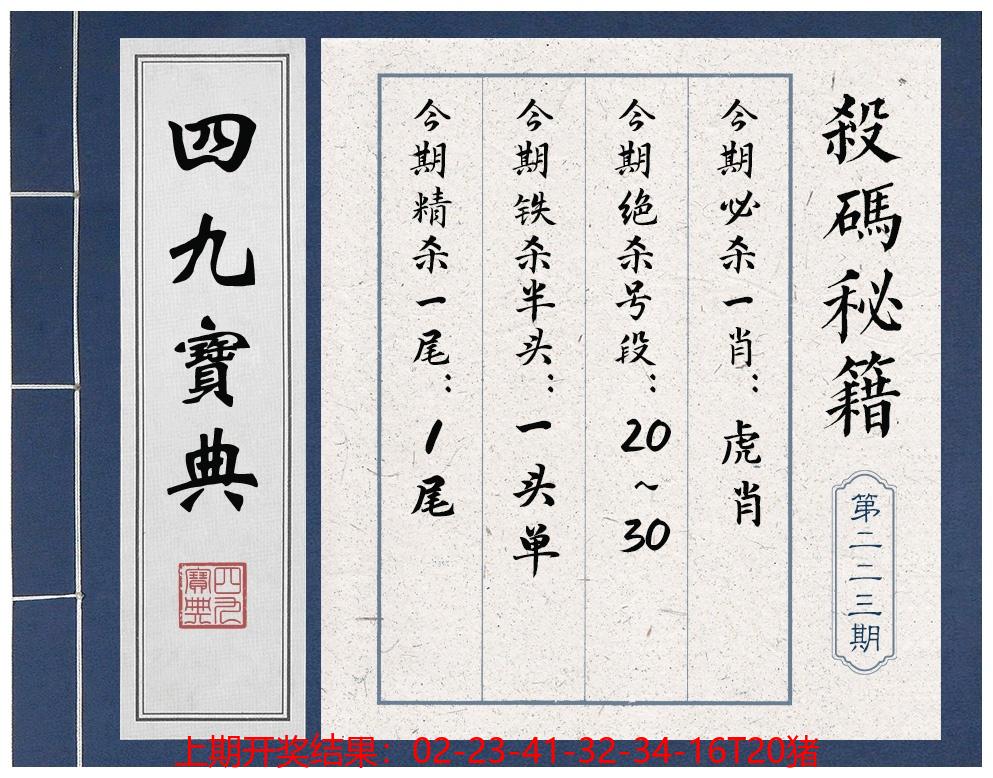 殺碼秘籍
第二二三期
今期必杀一肖：虎肖
今期绝杀号段：20~30
今期铁杀半头：一头单
今期精杀一尾：1尾
四九寶典
四九寶典
上期开奖结果：02-23-41-32-34-16T20猪